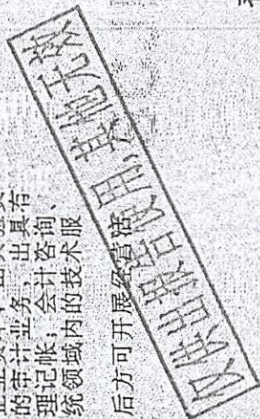 的审计业务，出具
理记帐；会计咨询、
统领域内的技术服
后方可开展经营活
仅供出报告使用，其他无效